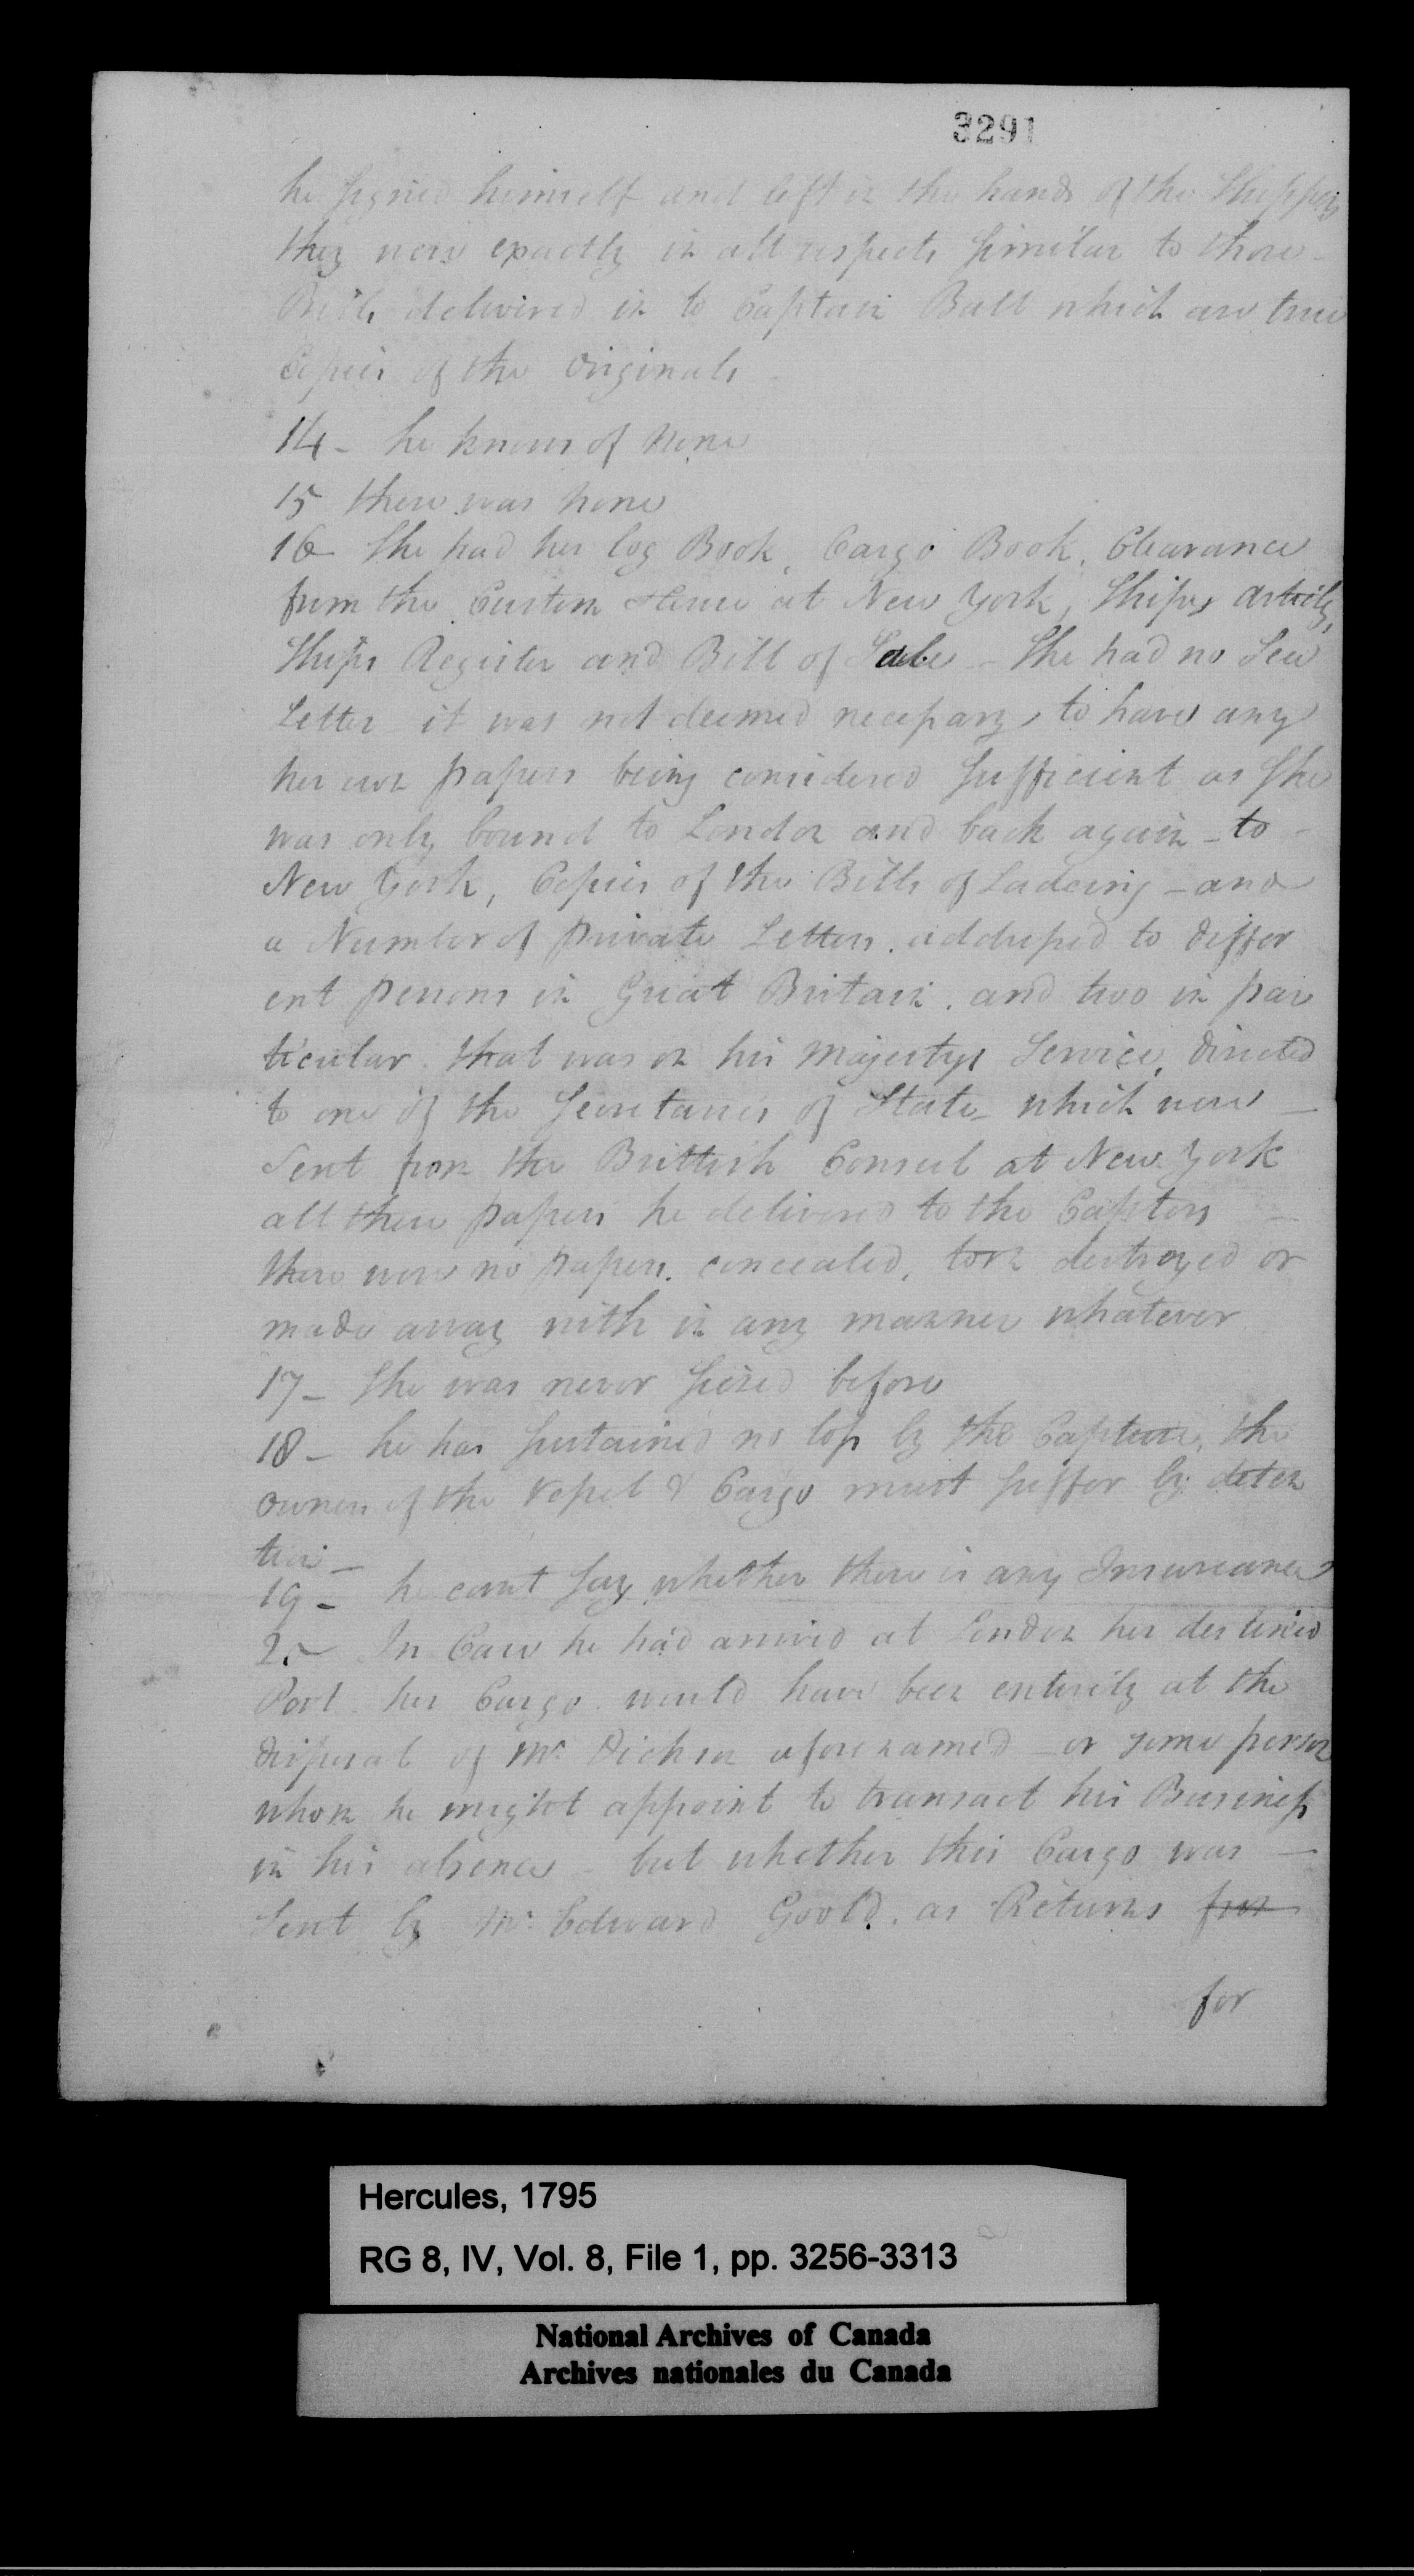 3291
he signed himself and left in the hands of the Shippers
they were exactly in all respects similar to those -
Bills delivered in to Captain Ball which are true
Copies of the Originals -
14 - he knows of none
15 there was none
16 She had her log Book, Cargo Book, Clearance
from the Custom House at New York, Ships Articles,
Ships Register and Bill of Sale - She had no Sea
Letter it was not deemed necessary to have any
her own papers being considered sufficient as she
was only bound to London and back again - to -
New York, Copies of the Bills of Ladeing - and
a Number of private Letters addressed to differ
ent persons in Great Britain. and two in par
ticular that was on his Majestys Service, directed
to one of the Secretaries of State which were -
Sent from the Brittish Consul at New York
all these papers he delivered to the Captors -
there were no papers concealed, torn destroyed or
made away with in any manner whatever
17 - She was never seized before
18 - he has sustained no loss by the Capture, the
owners of the Vessel & Cargo must suffer by deten
tion -
19 - he cant say whether there is any Insureance
20 - In Case he had arrived at London her destined
Port her Cargo would have been entirely at the
disposal of Mr. Dickson aforenamed - or some person
whom he might appoint to transact his Business
in his absence - but whether this Cargo was -
Sent by Mr. Edward Goold. as Returns for
for
Hercules, 1795
RG 8, IV, Vol. 8, File 1, pp. 3256-3313
National Archives of Canada
Archives nationales du Canada